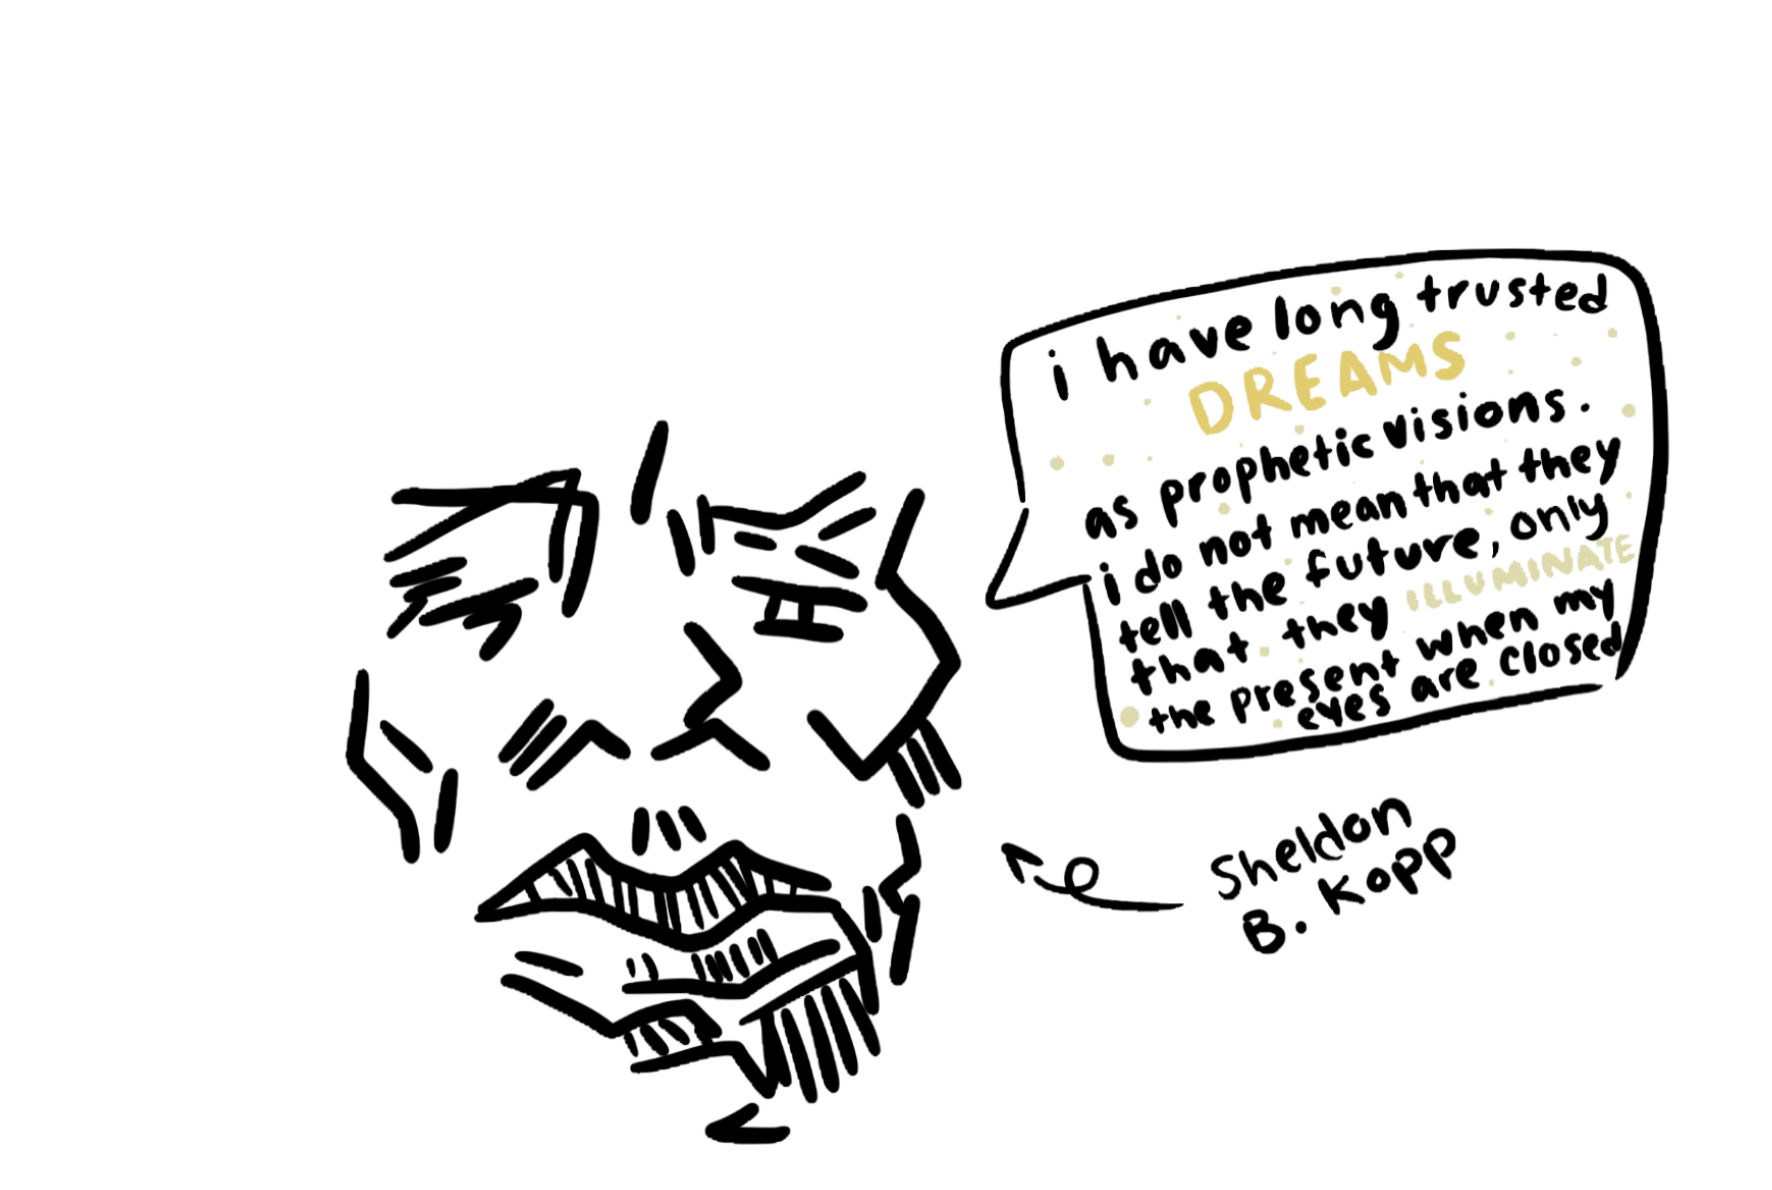 i have long trusted
DREAMS
as prophetic visions.
i do not mean that they
tell the future, only
that they ILLUMINATE
the present when my
eyes are closed
Sheldon
B. Kopp